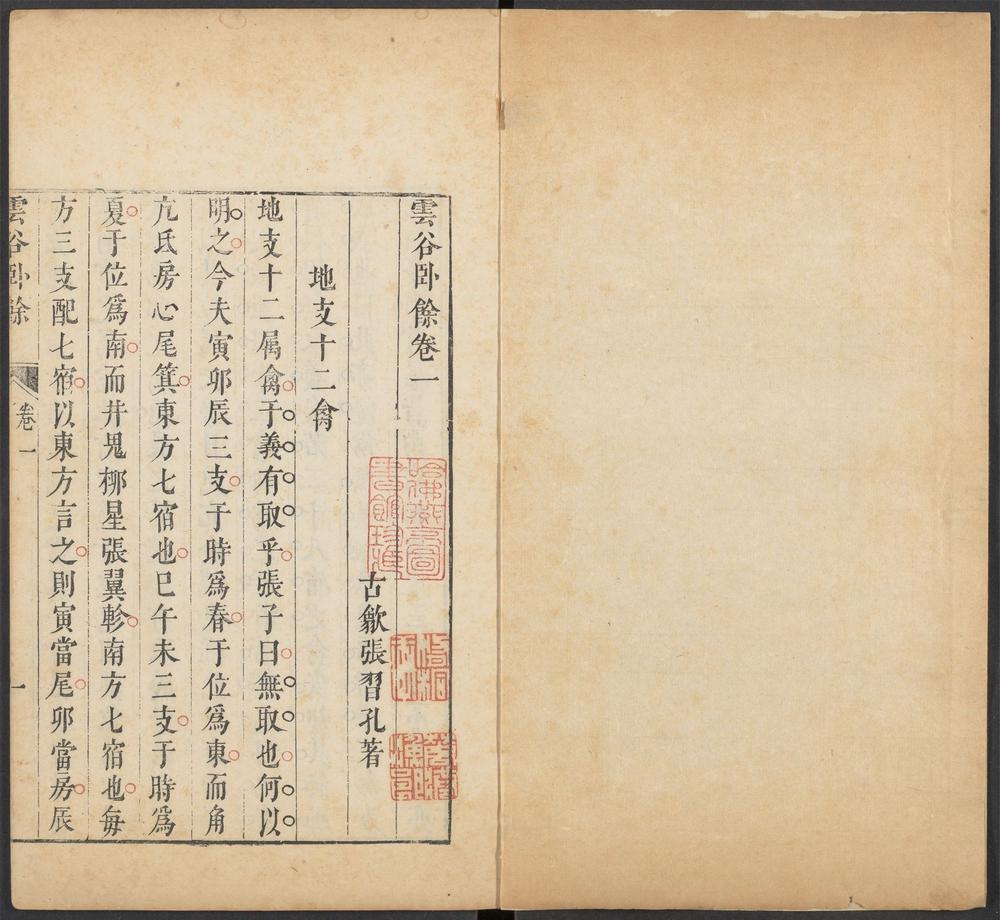 雲谷卧餘卷一
古歙張習孔著
地支十二禽
地支十二属禽于義有取乎張子曰無取也何以
明之今夫寅卯辰三支于時爲春于位爲東而角
亢氐房心尾箕東方七宿也巳午未三支于時爲
夏于位爲南而井鬼柳星張翼軫南方七宿也每
方三支配七宿以東方言之則寅當尾卯當房辰
雲谷卧餘
卷一
一
哈佛燕京圖書館珍藏